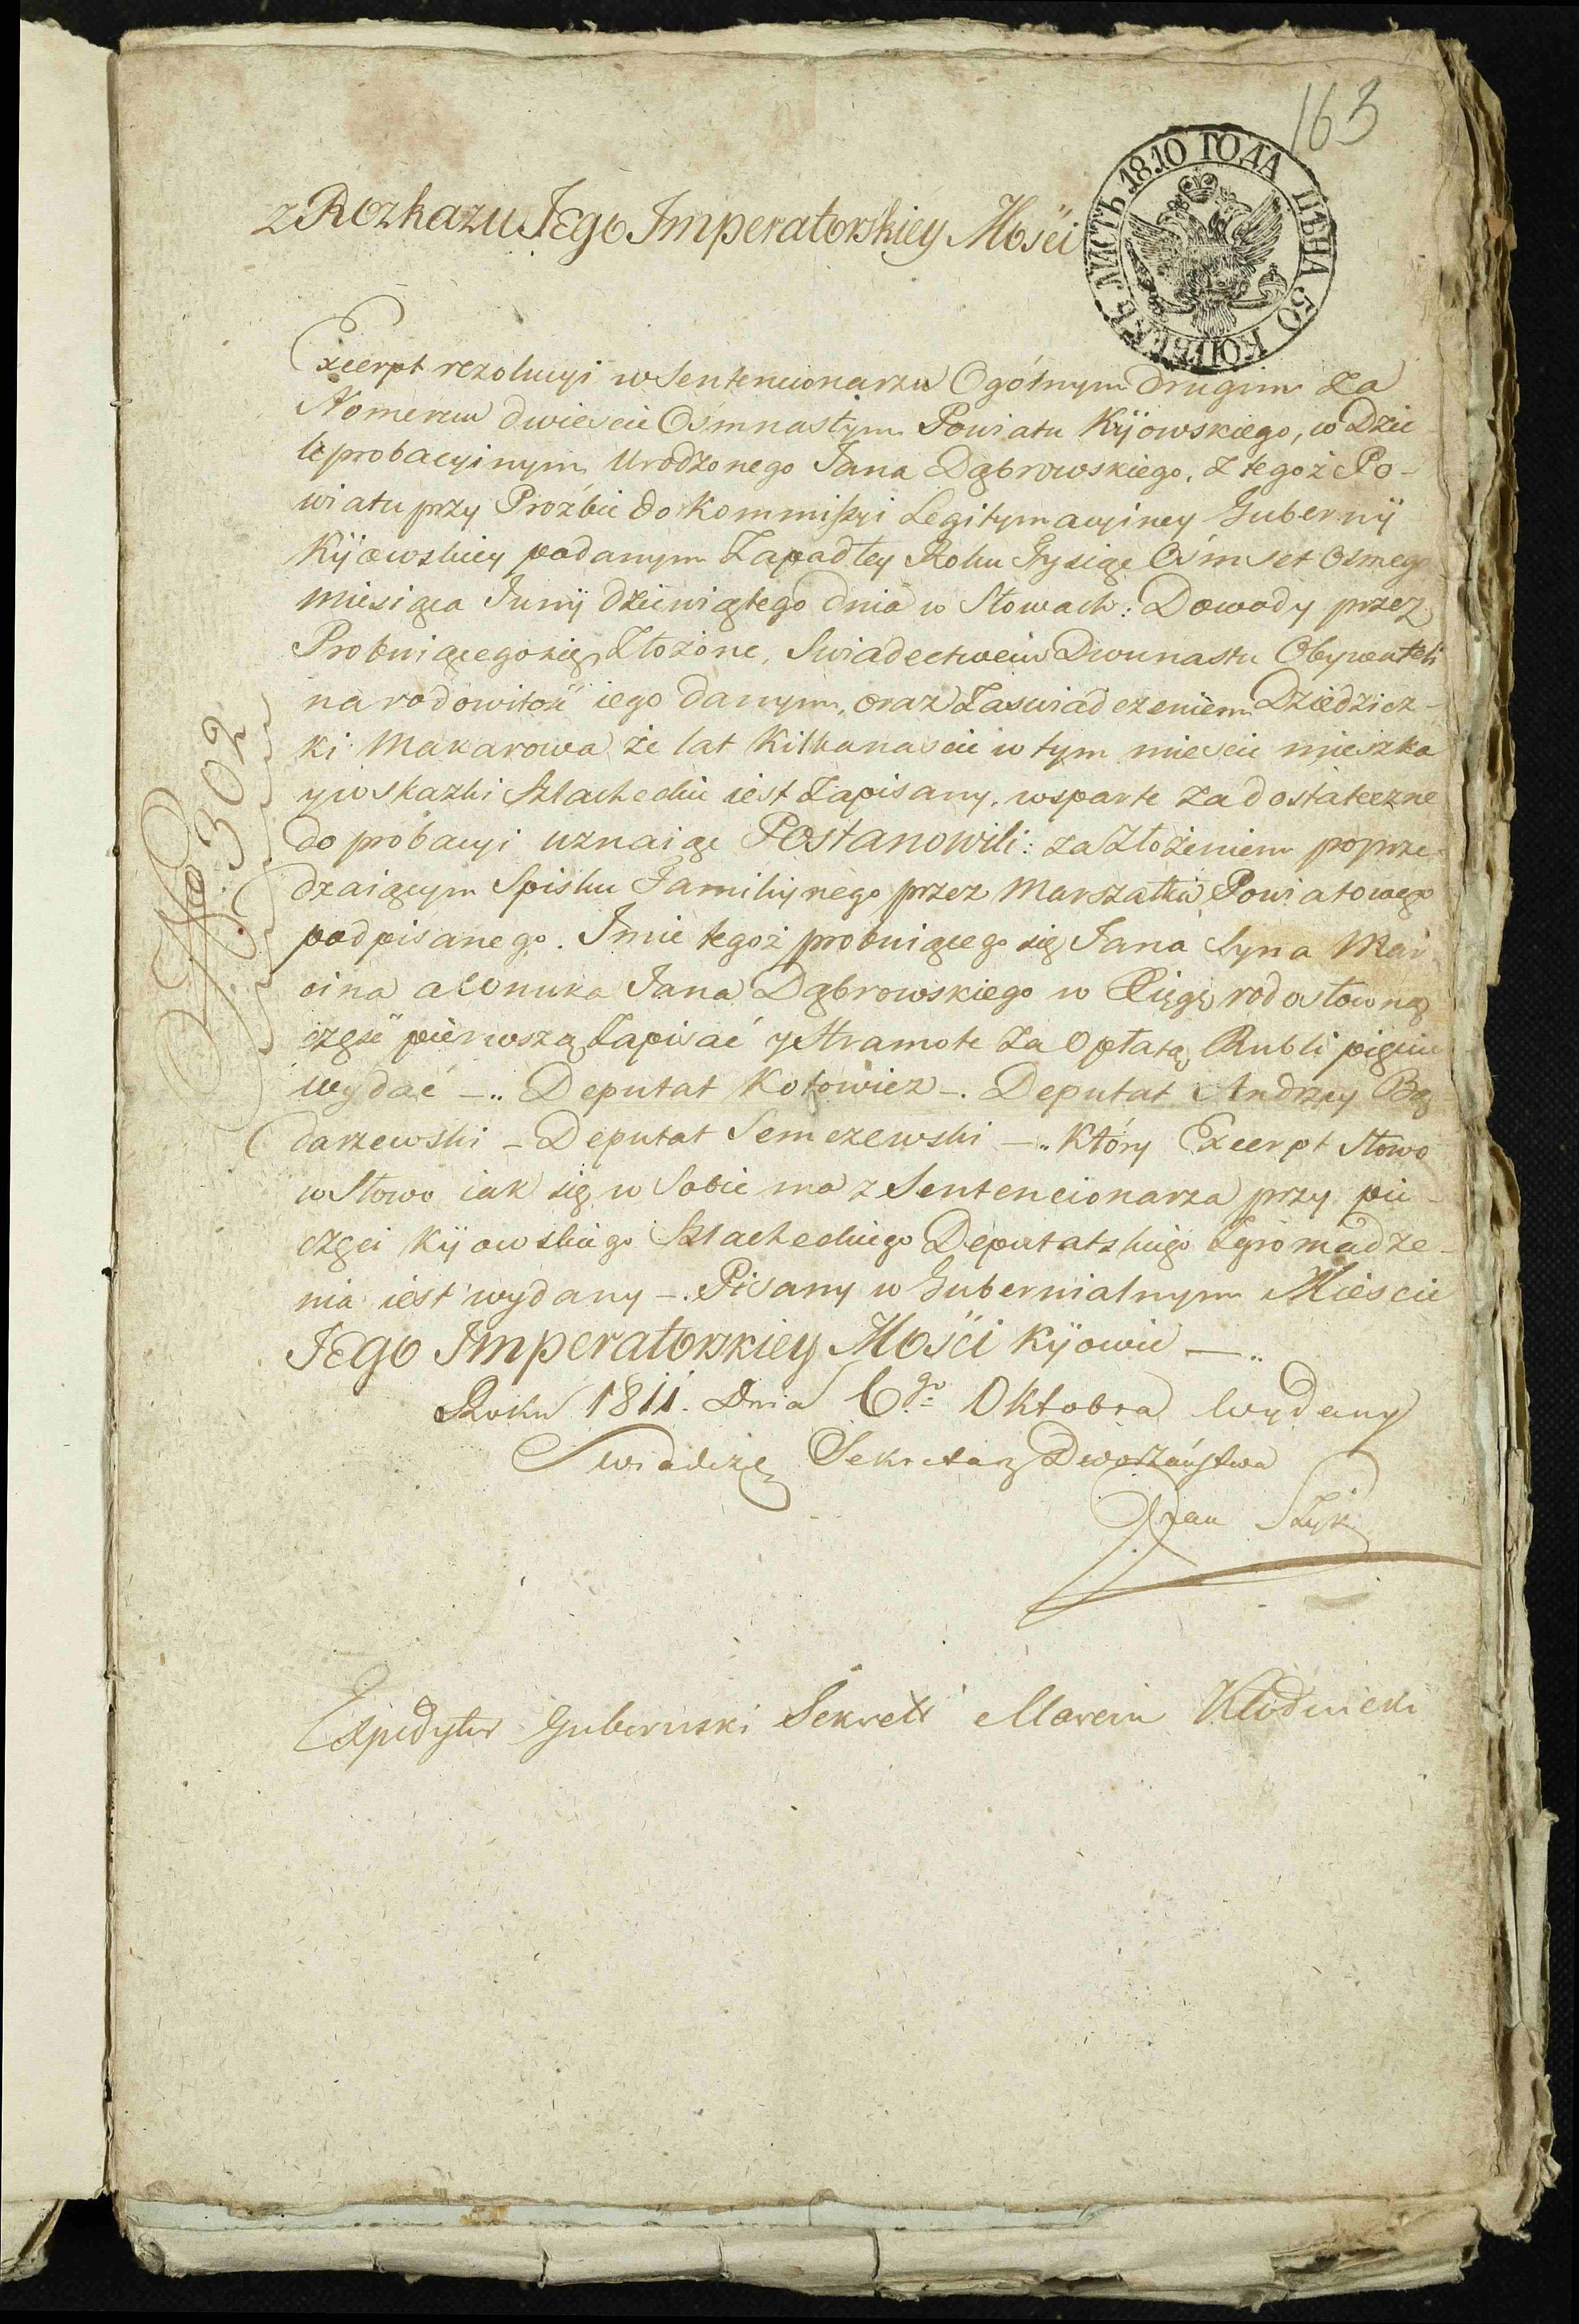 163
1810 ГОДА ЦѢНА 50 КОПѢЕКЪ ЛИСТЪ
z Rozkazu JEgo Imperatorskiey Mości
Excerpt rezolucyi w Sentencionarzu Ogólnym drugim Za
Nomerem dwieście Ośmnastym Powiatu Kijowskiego, w Dzie
le probacyinym Urodzonego Jana Dąbrowskiego, z tegoż Po-
wiatu przy Proźbie do Kommissyi Legitymacyiney Gubernij
Kijowskiey podanym Zapadłey Roku Tysiąc Ośmset Osmego
miesiąca Junij dziewiątego dnia w Słowach: Dowody przez
Probuiącego się Złożone, Swiadectwem Dwunastu Obywateli
na rodowitość iego danym, oraz Zaswiadczeniem Dziedzicz-
ki Makarowa że lat Kilkanaście w tym mieście mieszka
y w skazki Szlacheckie iest Zapisany, wsparte za dostateczne
do probacyi uznaiąc POstanowili: za Złożeniem poprze-
dzaiącym Spisku Familijnego przez Marszałka Powiatowego
podpisanego. Imie tegoż probuiącego się Jana Syna Mar-
cina a Wnuka Jana Dąbrowskiego w Xięgę rodosłowną
część pierwszą Zapisać y Hramotę Za Opłatą Rubli pięciu
wydać —.. Deputat Kotowicz —. Deputat Andrzey Bą-
darzewski — Deputat Semczewski —.. Który Excerpt Słowo
w Słowo iak się w Sobie ma z Sentencionarza przy pie-
częci Kijowskiego Szlacheckiego Deputatskiego Zgromadze-
nia iest wydany —. Pisany w Gubernialnym Mieście
JEgo Imperatorskiey Mości Kijowie —..
Roku 1811. Dnia 6go Oktobra wydany
Swiadczę Sekretarz Dworzaństwa
Jan
Expedytor Guberski Sekretź Marcin Kłodnicki
No. 302